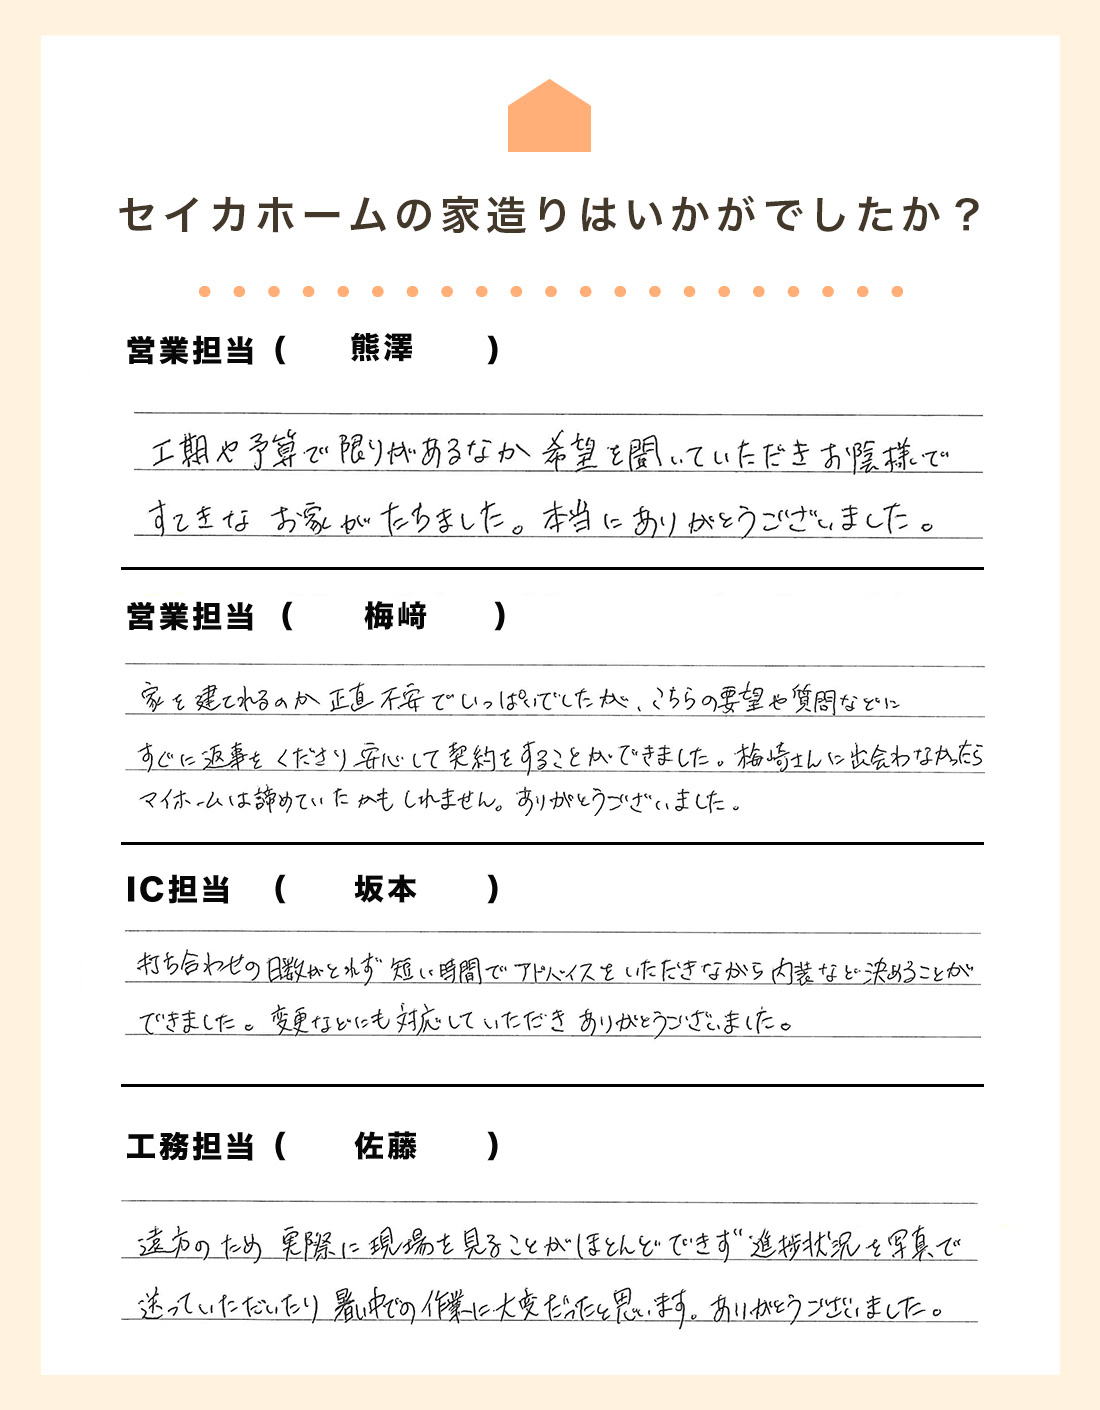 セイカホームの家造りはいかがでしたか？
営業担当 ( 熊澤 )
工期や予算で限りがあるなか 希望を聞いていただきお陰様で
すてきな お家がたちました。本当にありがとうございました。
営業担当 ( 梅﨑 )
家を建てれるのか正直不安でいっぱいでしたが、こちらの要望や質問などに
すぐに返事をくださり安心して契約をすることができました。梅崎さんに出会わなかったら
マイホームは諦めていたかもしれません。ありがとうございました。
IC担当 ( 坂本 )
打ち合わせの日数がとれず 短い時間でアドバイスをいただきながら内装など決めることが
できました。変更などにも対応していただき ありがとうございました。
工務担当 ( 佐藤 )
遠方のため 実際に現場を見ることがほとんどできず 進捗状況を写真で
送っていただいたり 暑い中での作業に大変だったと思います。ありがとうございました。